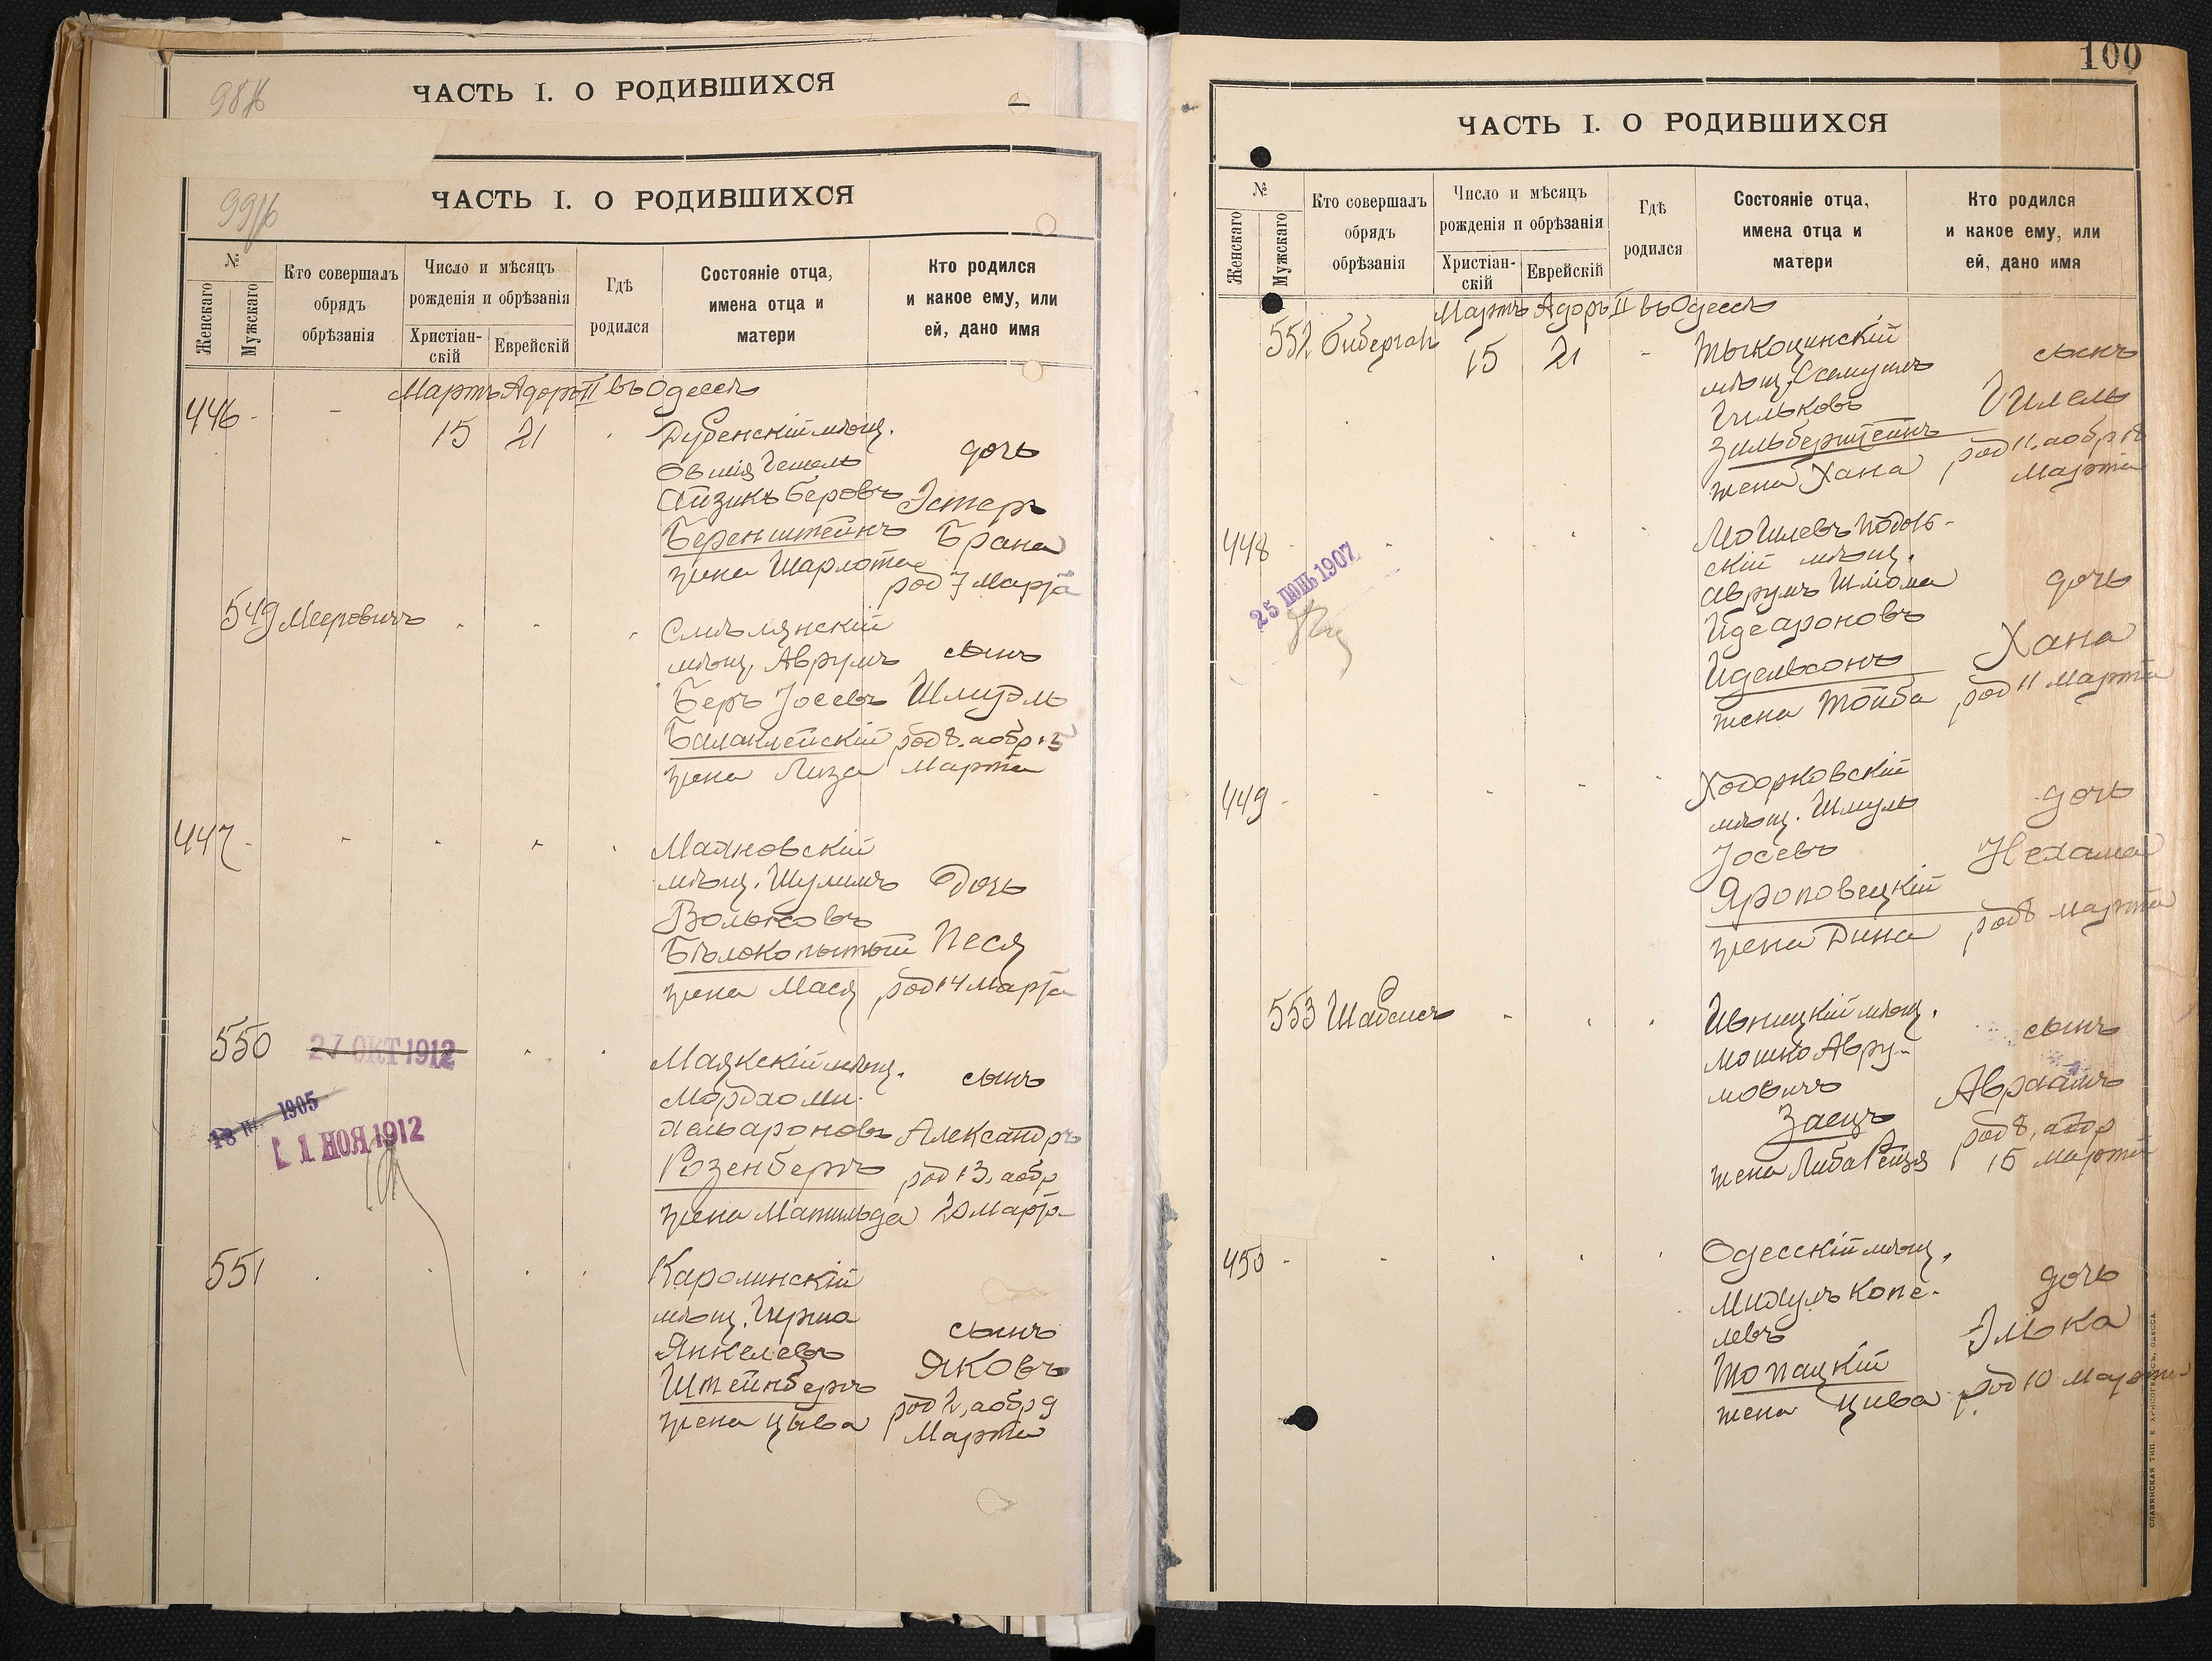 98/б
ЧАСТЬ I. О РОДИВШИХСЯ
99/б
ЧАСТЬ I. О РОДИВШИХСЯ
№
Женскаго
Мужскаго
Кто совершалъ
обрядъ
обрѣзанія
Число и мѣсяцъ
рожденія и обрѣзанія
Христіан-
скій
Еврейскій
Гдѣ
родился
Состояніе отца,
имена отца и
матери
Кто родился
и какое ему, или
ей, дано имя
Мартъ Адаръ II въ Одессѣ
446 - - 15 21
Дубенскій мѣщ.
Овшія Гешель
Айзикъ Беровъ
Беренштейнъ
жена Шарлота
дочь
Эстеръ
Брана
род 7 Марта
549 Мееровичъ
Смѣлянскій
мѣщ. Аврумъ
Беръ Іосевъ
Балаклейскій
жена Лиза
сынъ
Шмуэль
род 8. а обр 15
Марта
447 -
Маяновскій
мѣщ. Шулимъ
Вольковъ
Бѣлокопытый
жена Мася
Дочь
Песя
род 14 Марта
550
27 ОКТ 1912
18 1905
1 НОЯ 1912
Маякскій мѣщ.
Мордхо Ми-
хельароновъ
Розенбергъ
жена Матильда
сынъ
Александръ
род 13, а обр
20 Марта
551
Каролинскій
мѣщ. Герша
Янкелевъ
Штейнбергъ
жена Цыва
сынъ
Яковъ
род 2, а обр 9
Марта
100
ЧАСТЬ I. О РОДИВШИХСЯ
№
Женскаго
Мужскаго
Кто совершалъ
обрядъ
обрѣзанія
Число и мѣсяцъ
рожденія и обрѣзанія
Христіан-
скій
Еврейскій
Гдѣ
родился
Состояніе отца,
имена отца и
матери
Кто родился
и какое ему, или
ей, дано имя
Мартъ Адаръ II въ Одессѣ
552 Бибергалъ 15 21 -
Тыкоцинскій
мѣщ. Самуилъ
Гильковъ
Зильберштейнъ
жена Хана
сынъ
Гилель
род 11. а обр 18
Марта
448
25 ІЮНЬ 1907
Могилевъ Подоль-
скій мѣщ.
Аврумъ Шлома
Идеароновъ
Идельсонъ
жена Тойба
дочь
Хана
род 11 Марта
449 -
Ходорковскій
мѣщ. Шмуль
Іосевъ
Яроповецкій
жена Дина
дочь
Нехама
род 8 Марта
553 Шабсисъ
Ивницкій мѣщ.
Мошко Авру-
мовичъ
Заецъ
жена Либа Рейзя
сынъ
Авраамъ
род 8, а обр
15 Марта
450 -
Одесскій мѣщ.
Михулъ Копе-
левъ
Топацкій
жена Цива
дочь
Элька
род 10 Марта
СЛАВЯНСКАЯ ТИП. Е. ХРИСОГЕЛОСЪ, ОДЕССА.